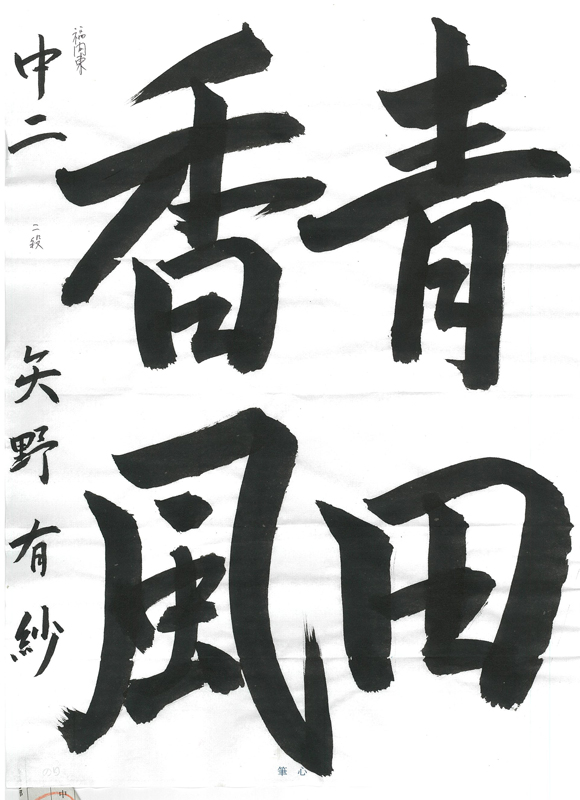 青田
香風
福岡東
中二
二段
矢野有紗
心筆